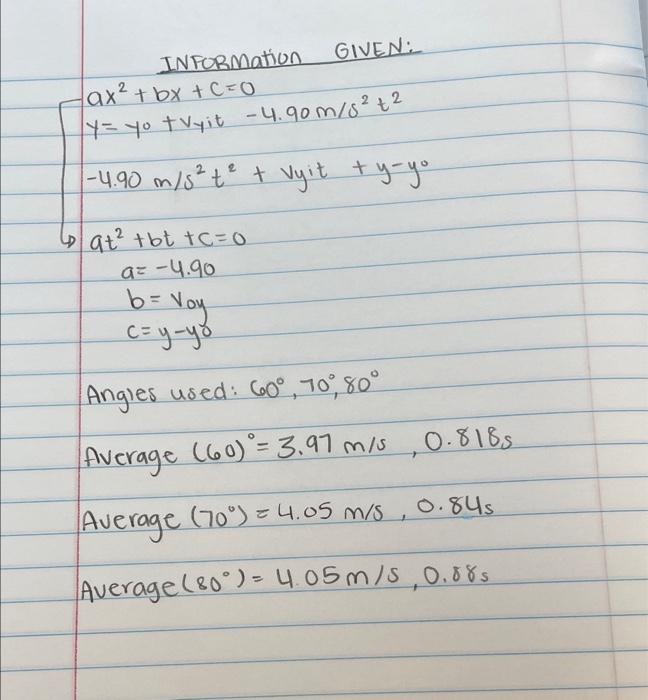 INFORMATION GIVEN:
ax² + bx + C=0
y= yo + Vyit - 4.90 m/s² t²
-4.90 m/s² t² + Vyit + y-yo
at² + bt + C=0
a= -4.90
b= Voy
C= y-yo
Angles used: 60°, 70°, 80°
Average (60)°= 3.97 m/s, 0.818s
Average (70°) = 4.05 m/s, 0.84s
Average (80°) = 4.05 m/s, 0.88s